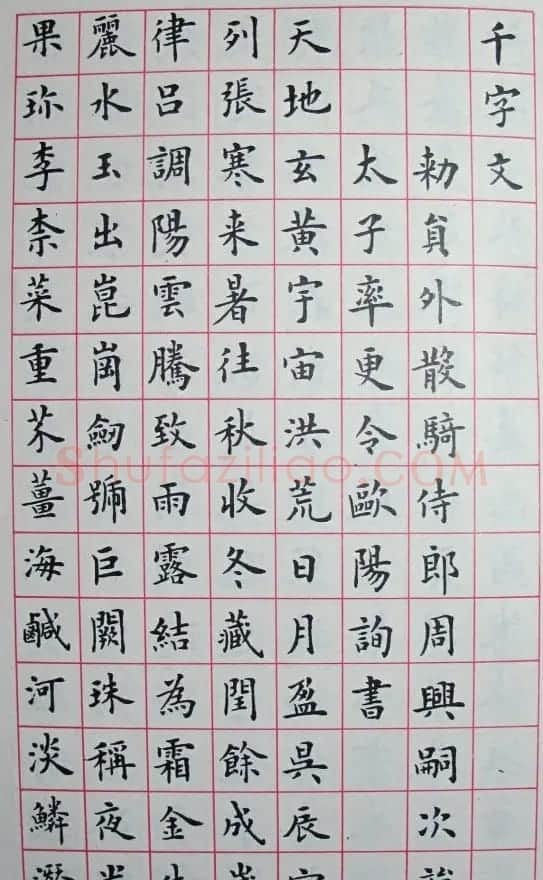 千字文
勅貟外散騎侍郎周興嗣次
太子率更令歐陽詢書
天地玄黄宇宙洪荒日月盈昃辰
列張寒来暑往秋收冬藏閏餘成
律呂調陽雲騰致雨露結為霜金
麗水玉出崑崗劒號巨闕珠稱夜
果珎李柰菜重芥薑海鹹河淡鱗
Shufaziliao.COM